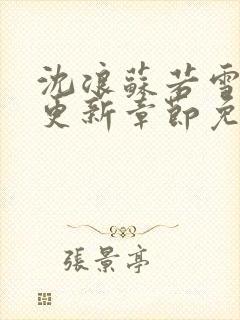 沈浪蘇若雪
更新章節免
張景亭